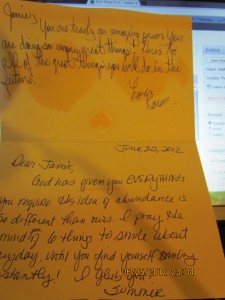 Jamie,
You are truly an amazing person. You
are doing so many great things! Here's to
all of the great things you will do in the
future.
Love,
June 20, 2012
Dear Jamie,
God has given you EVERYTHING
you require. His idea of abundance is
different than ours. I pray He
6 things to smile about
everyday, until you find yourself smiling
constantly! I love you!
Summer